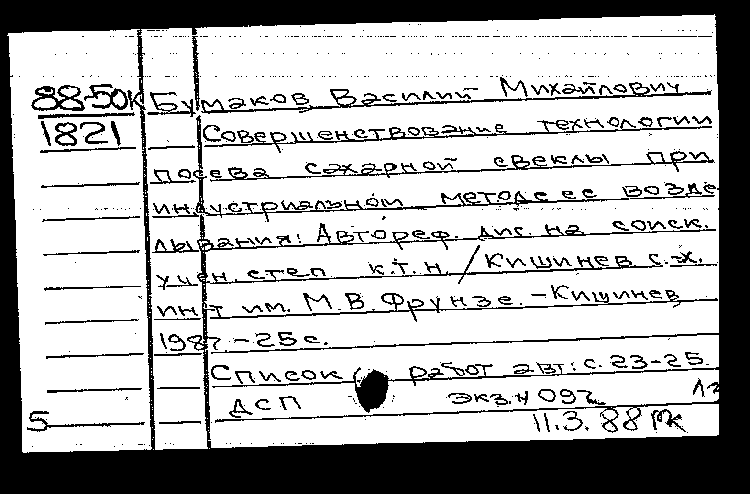 88-50К Бумаков Василий Михайлович
1821 Совершенствование технологии
посева сахарной свеклы при
индустриальной методе ее возде
лывания: Автореф. дис. на соиск.
учен. степ к.т.н. / Кишинев с.-х.
ин-т им. М.В. Фрунзе. - Кишинев
1987. - 25 с.
Список работ авт: с. 23-25
ДСП экз. н 092
5 11.3.88